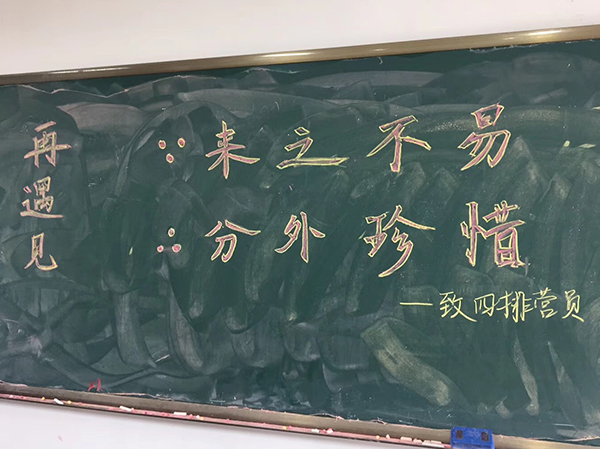 再遇见
∵来之不易
∴分外珍惜
——致四排营员